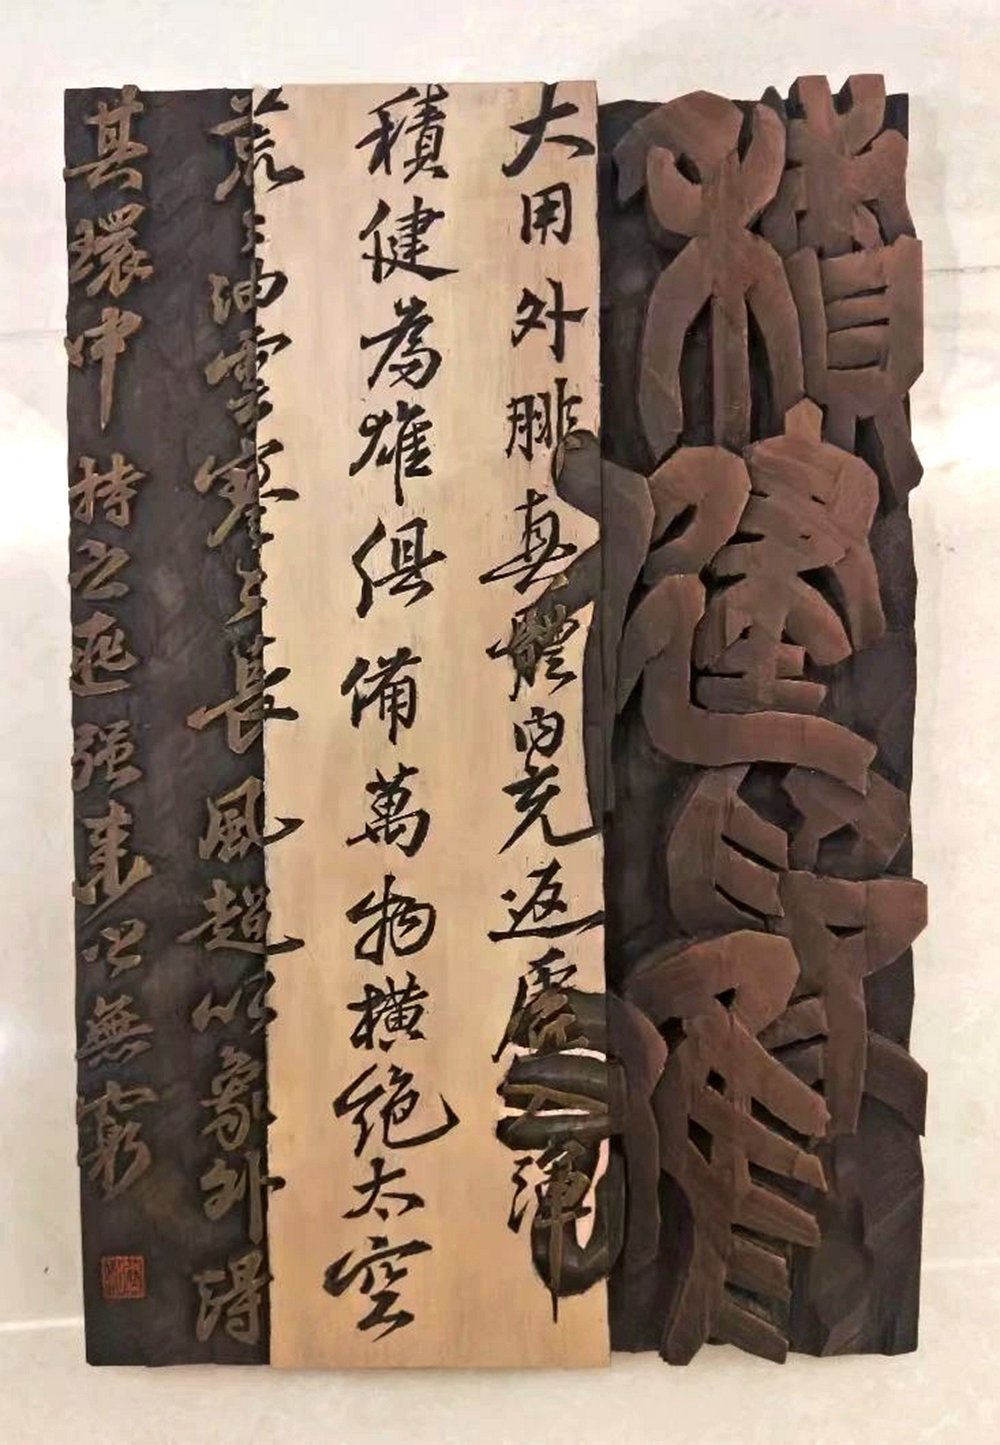 積健
大用外腓真體内充返虛入渾
積健為雄俱備萬物橫絕太空
荒々油雲寥々長風超以象外得
其環中持之匪强來之無窮